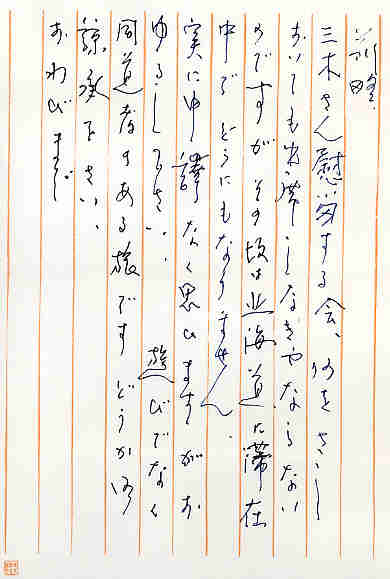 前略、
三木さん慰労する会、何をさし
おいても出席しなきやならない
のですが その頃は北海道に滞在
中で どうにもなりません。
実に申し訳なく思ひますが お
ゆるし下さい、 遊びでなく
同道者のある旅です どうか御
諒承下さい、
おわびまで